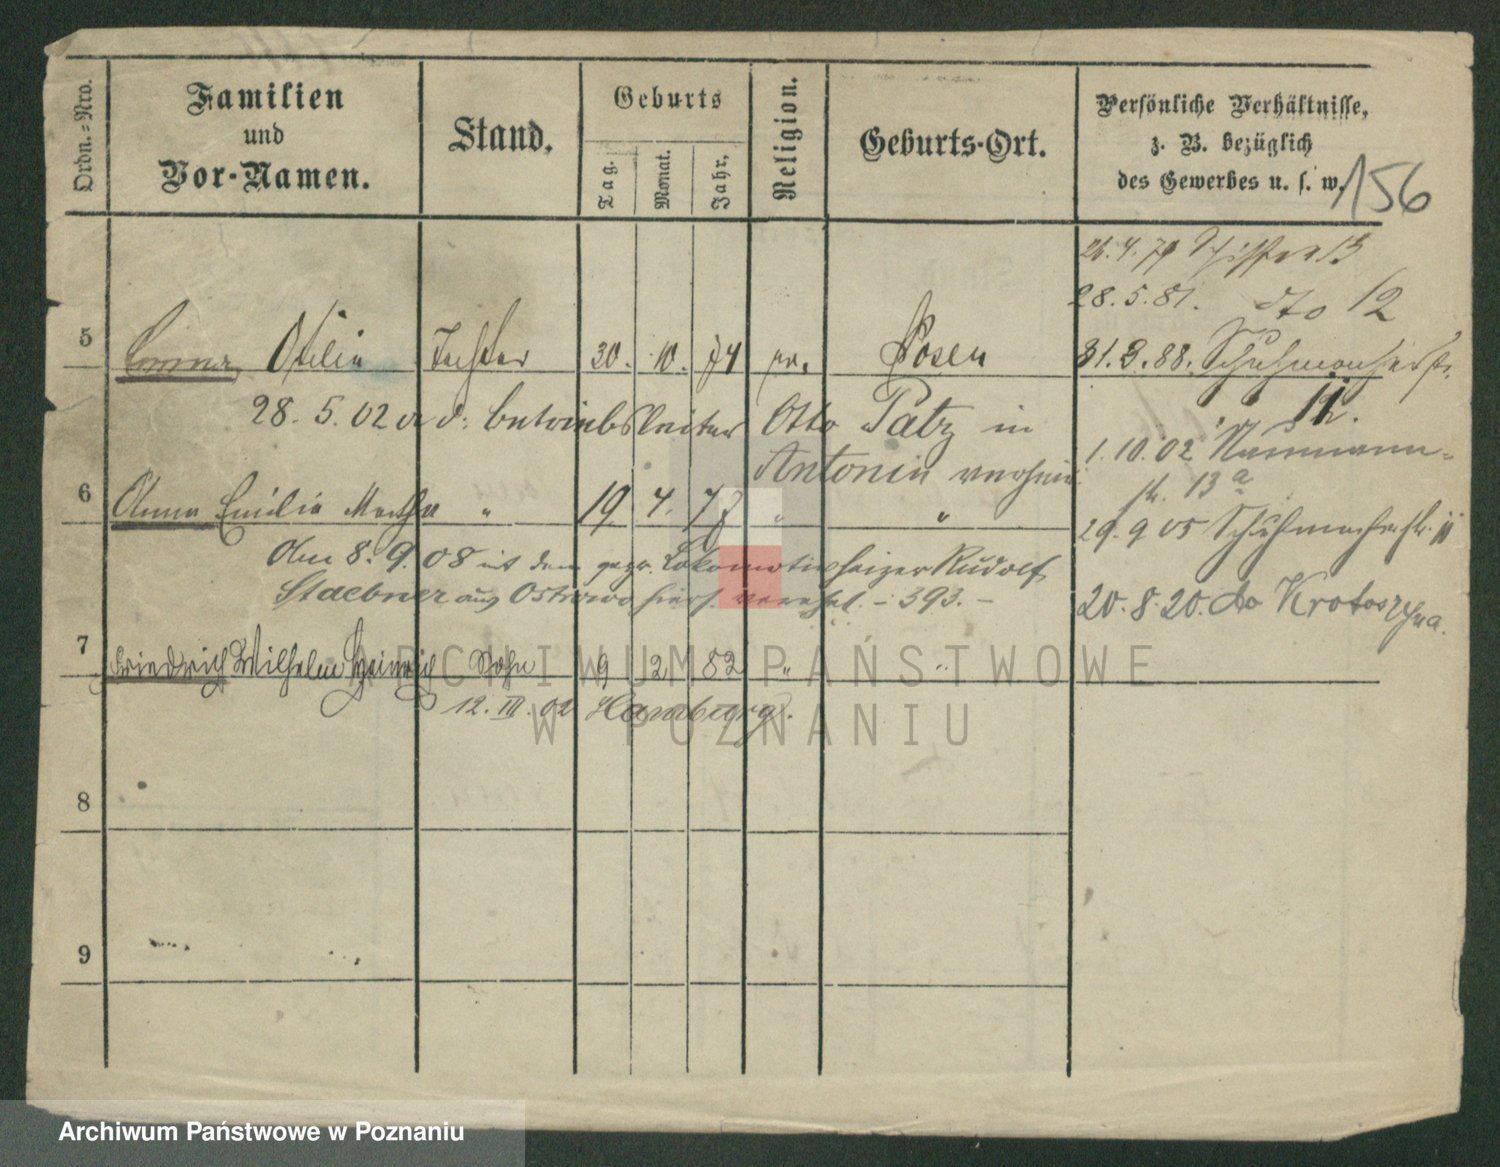 Ordn.=Nro.
Familien
und
Vor-Namen.
Stand.
Geburts
Tag.
Monat.
Jahr,
Religion.
Geburts-Ort.
Persönliche Verhältnisse,
z. B. bezüglich
des Gewerbes u. s. w.
156
26. 4. 79
28. 5. 81. dto 12
5 Emma Otilie Tochter 30. 10. 74 pr. Posen
31. 3. 88. Schuhmacherstr.
12.
28. 5. 02 a d. Betriebsleiter Otto Patz in
Antonin
1. 10. 02 Naumann=
str. 13 a
6 Anna Emilie Martha " 19. 4. 77 " "
29. 9 05 Schuhmacherstr. 11
Am 8. 9. 08 mit dem gepr. Lokomotivheizer Rudolf
Staebner aus Ostrowo hiers. verehel. - 393. -
20. 8. 20. do Krotoszyna.
7 Friedrich Wilhelm Heinrich Sohn 9 2 82 " "
12. III. 02 Hamburg.
8
9
ARCHIWUM PAŃSTWOWE
W POZNANIU
Archiwum Państwowe w Poznaniu